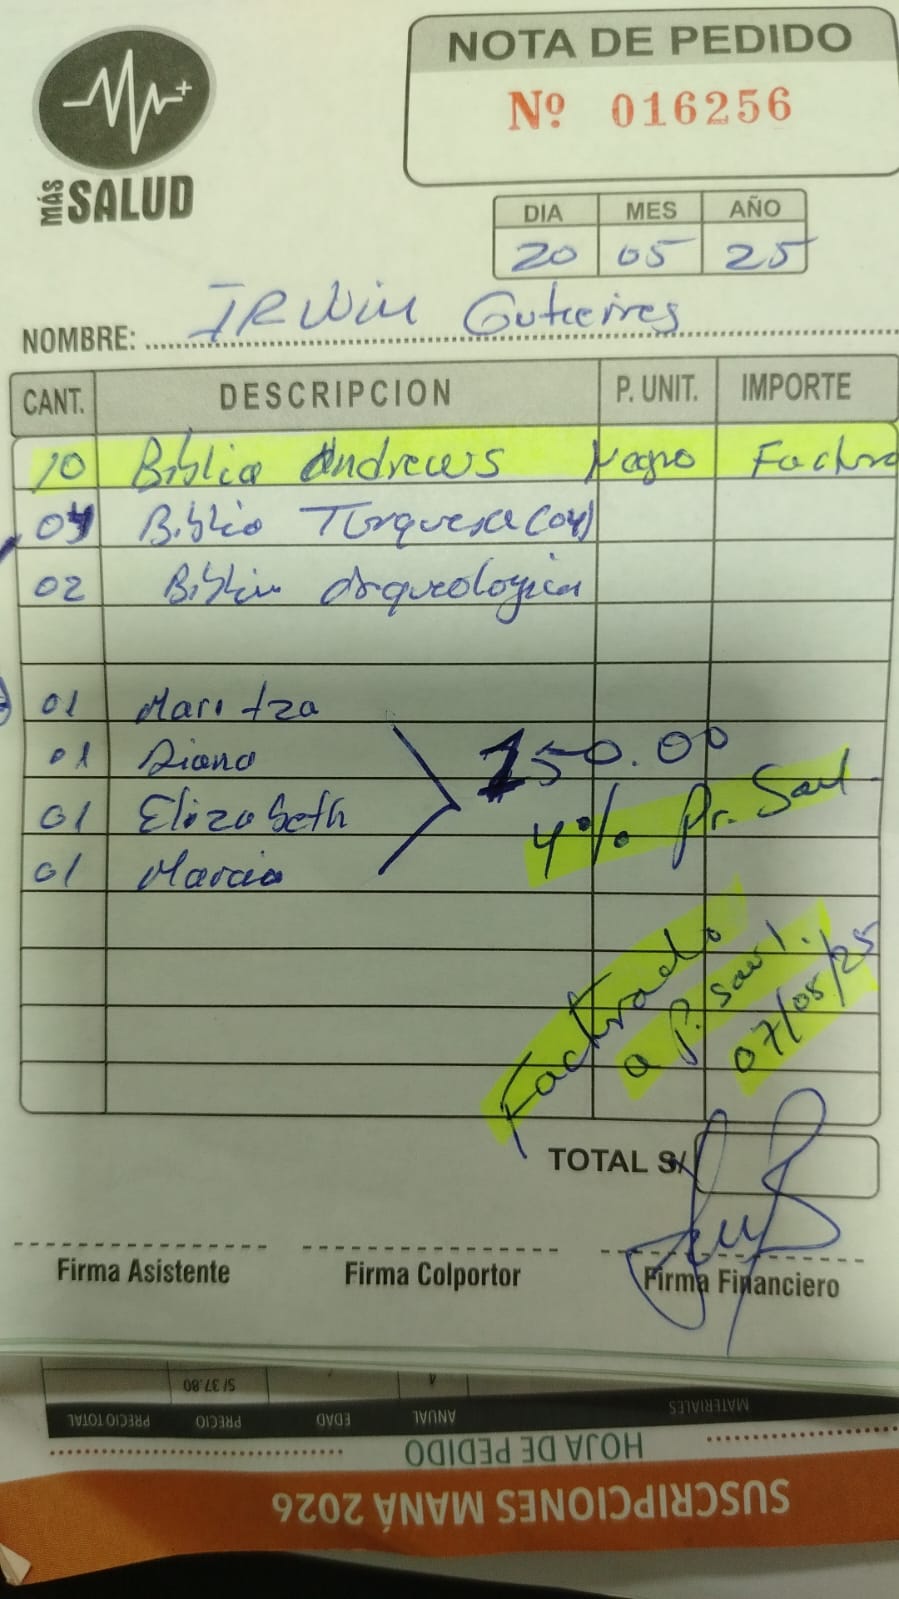 MÁS SALUD
NOTA DE PEDIDO
Nº 016256
DIA MES AÑO
20 05 25
NOMBRE: IRWin Gutierres
CANT. DESCRIPCION P. UNIT. IMPORTE
10 Biblia Andrews Negro Factura
04 Biblia Turquesa (04)
02 Biblia Arqueologica
01 Maritza
01 Diana
150.00
01 Elizabeth
4% Pr. Saul
01 Marcia
Facturado
a P. Saul.
07/05/25
TOTAL S/
Firma Asistente Firma Colportor Firma Financiero
S/ 37.80
MATERIALES ANUAL EDAD PRECIO PRECIO TOTAL
HOJA DE PEDIDO
SUSCRIPCIONES MANÁ 2026